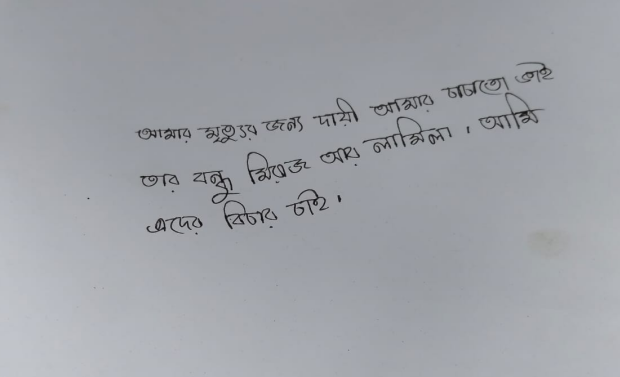 আমার মৃত্যুর জন্য দায়ী আমার চাচাতো ভাই
তার বন্ধু মিরাজ আর লামিলা। আমি
এদের বিচার চাই।